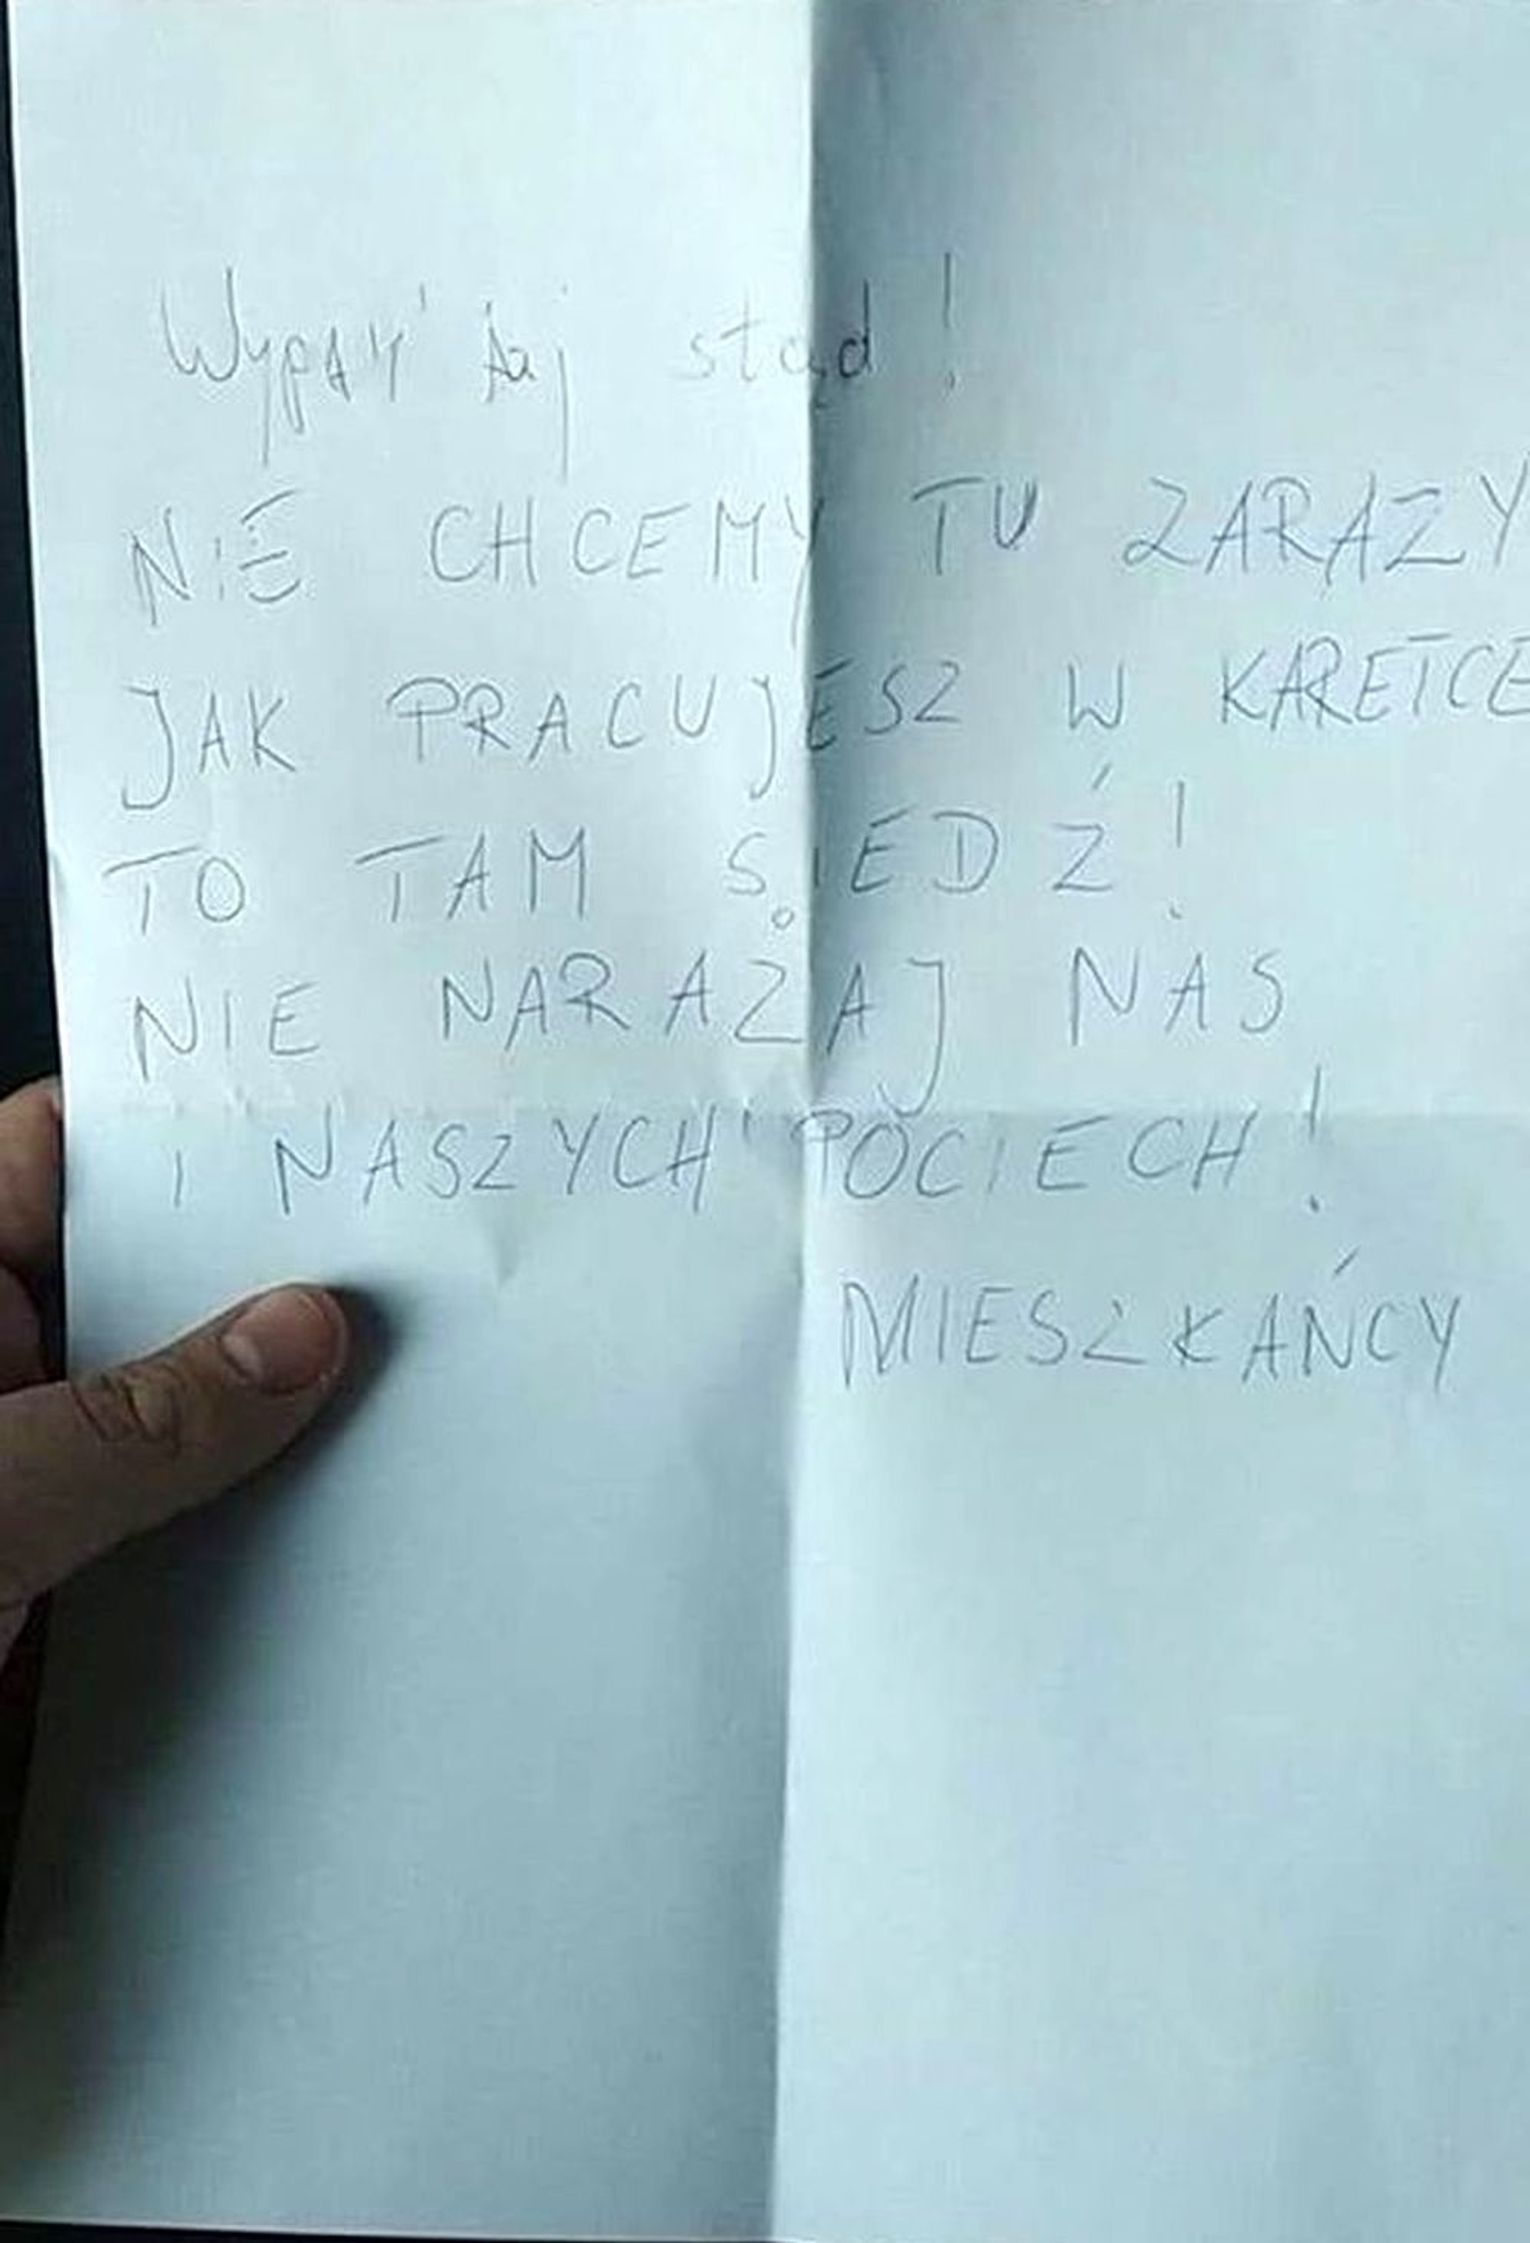 stąd!
NIE CHCEMY TU ZARAZY
JAK PRACUJESZ W KARETCE
TO TAM SIEDŹ!
NIE NARAŻAJ NAS
I NASZYCH POCIECH!
MIESZKAŃCY